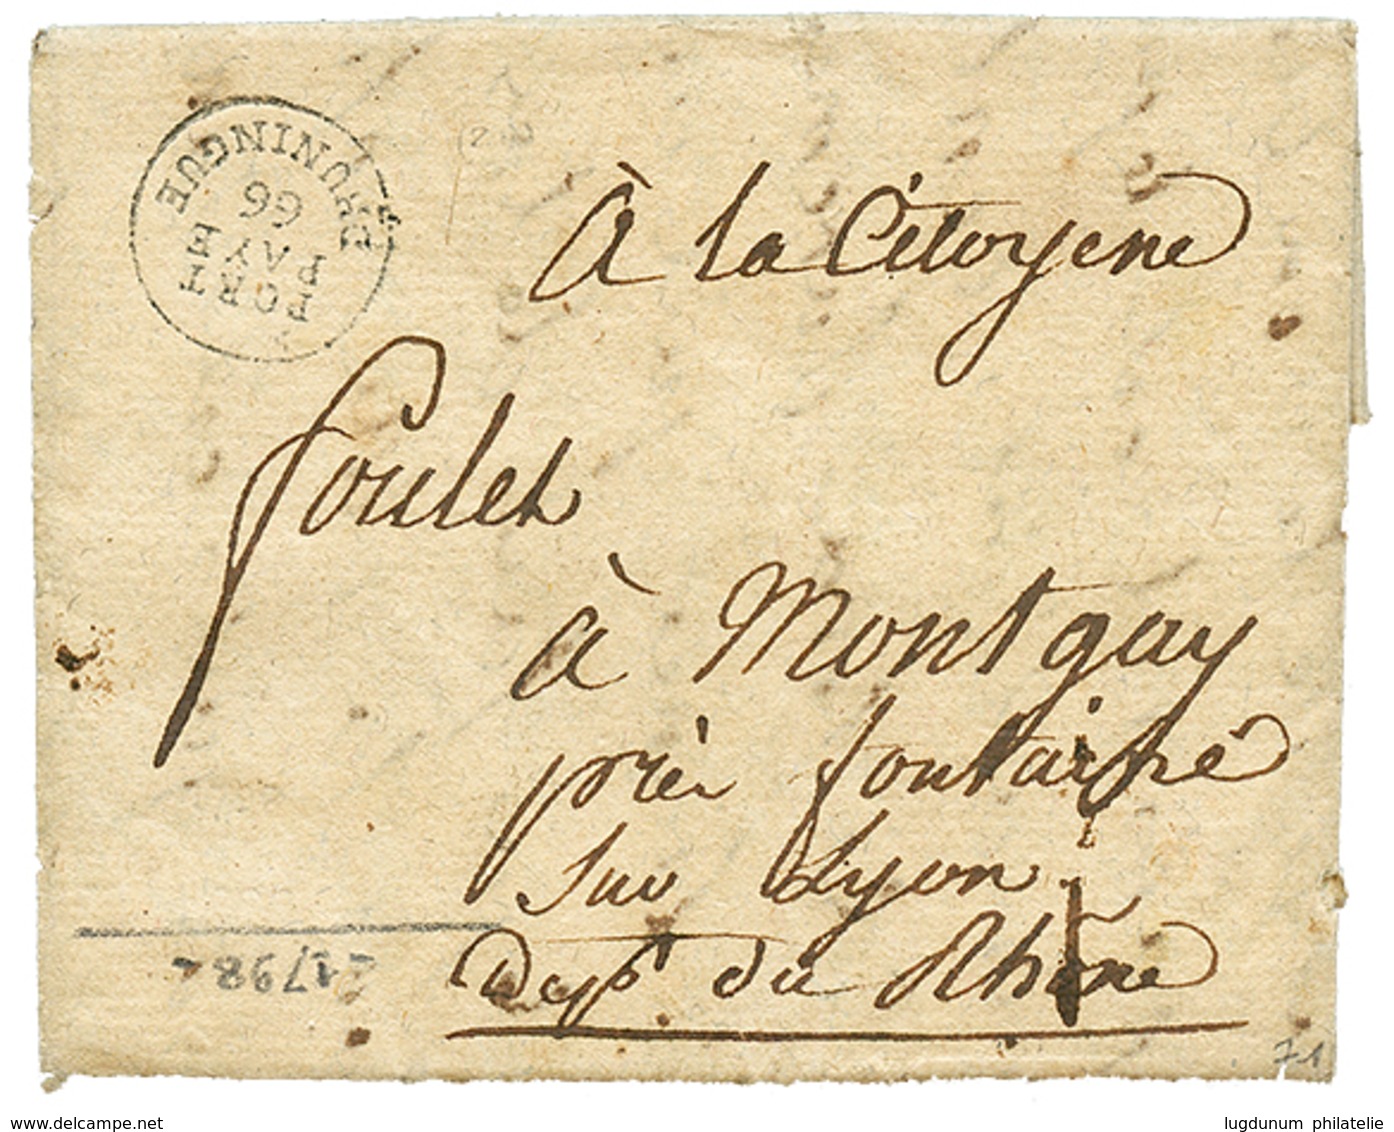 BRUNINGUE
66
PORT
PAYE
à la Citoyene
foulet
à Montgay
près fontaine
sur Lyon
Dep.t du Rhône
1798
71
www.delcampe.net
lugdunum philatelie